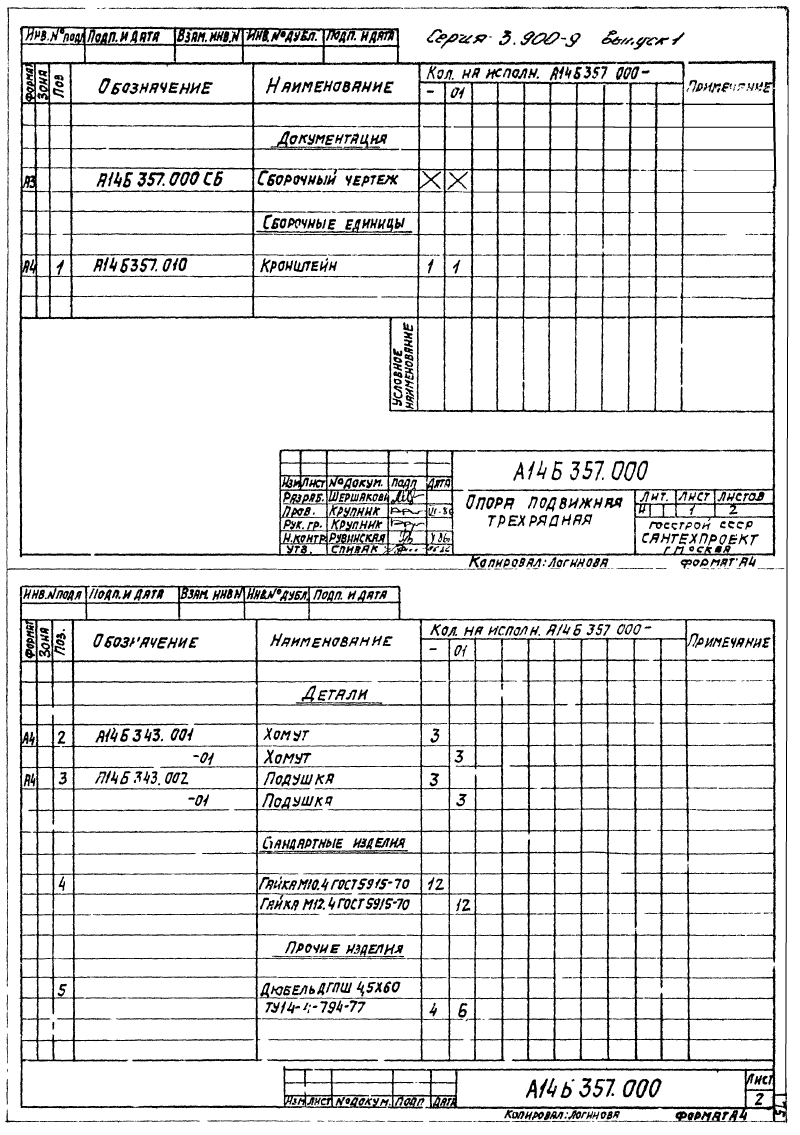 Инв. № подл Подп. и дата Взам. инв. № Инв. № дубл. Подп. и дата
Серия 3.900-9 Выпуск 1
Формат Зона Поз Обозначение Наименование Кол. на исполн. А14Б357 000- Примечание
- 01
Документация
А3 А14Б 357.000 СБ Сборочный чертеж X X
Сборочные единицы
А4 1 А14Б357.010 Кронштейн 1 1
Условное наименование
А14Б 357.000
Изм Лист № докум. Подп Дата
Разраб. Шершакова
Пров. Крупник
Рук. гр. Крупник
Н.контр Рувинская
Утв. Спивак
Опора подвижная
трехрядная
Лит. Лист Листов
И 1 2
Госстрой СССР
Сантехпроект
г. Москва
Копировал: Логинова Формат А4
Инв. № подл Подп. и дата Взам. инв № Инв. № дубл. Подп. и дата
Формат Зона Поз. Обозначение Наименование Кол. на исполн. А14Б 357 000- Примечание
- 01
Детали
А4 2 А14Б 343. 001 Хомут 3
-01 Хомут 3
А4 3 А14Б 343.002 Подушка 3
-01 Подушка 3
Стандартные изделия
4 Гайка М10.4 ГОСТ 5915-70 12
Гайка М12.4 ГОСТ 5915-70 12
Прочие изделия
5 Дюбель ДГПШ 4,5х60
ТУ14-4-794-77 4 6
А14Б 357.000
Лист
2
Изм Лист № докум. Подп Дата
Копировал: Логинова Формат А4